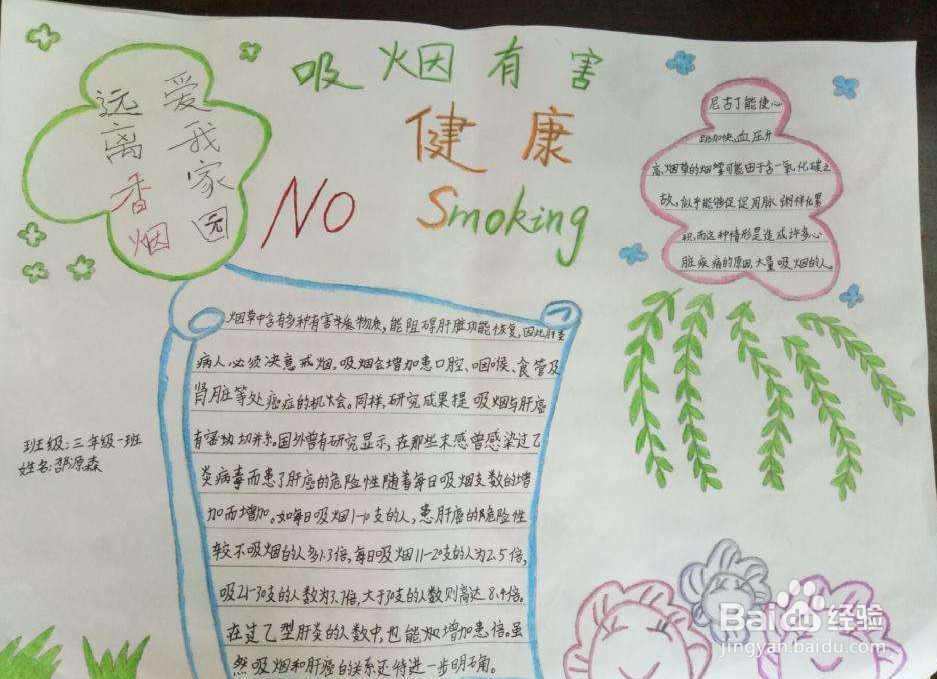 吸烟有害
健康
NO Smoking
爱我家园
远离香烟
尼古丁能使心
跳加快,血压升
高,烟草的烟雾可能由于含一氧化碳之
故,似乎能够促足用脉粥样化累
积,而这种情形是造成许多心
脏疾病的原因,大量吸烟的人。
烟草中含有多种有害物质,能阻碍肝脏功能恢复,因此肝
病人必须决意戒烟。吸烟会增加患口腔、咽喉、食管及
肾脏等处癌症的机会。同样,研究成果提 吸烟与肝癌
有密切 。国外曾有研究显示,在那些未感曾感染过乙
炎病毒而患了肝癌的危险性随着每日吸烟支数的增
加而增加。如每日吸烟1-10支的人,患肝癌的危险性
较不吸烟的人多1.3倍,每日吸烟11-20支的人为2.5倍,
吸21-30支的人数为3.7倍,大于30支的人数则高达8.4倍。
在过乙型肝炎的人数中,也能 增加患倍。虽
然吸烟和肝癌的关系还待进一步明确。
班级:三年级一班
姓名:邵源森
Baidu经验
jingyan.baidu.com